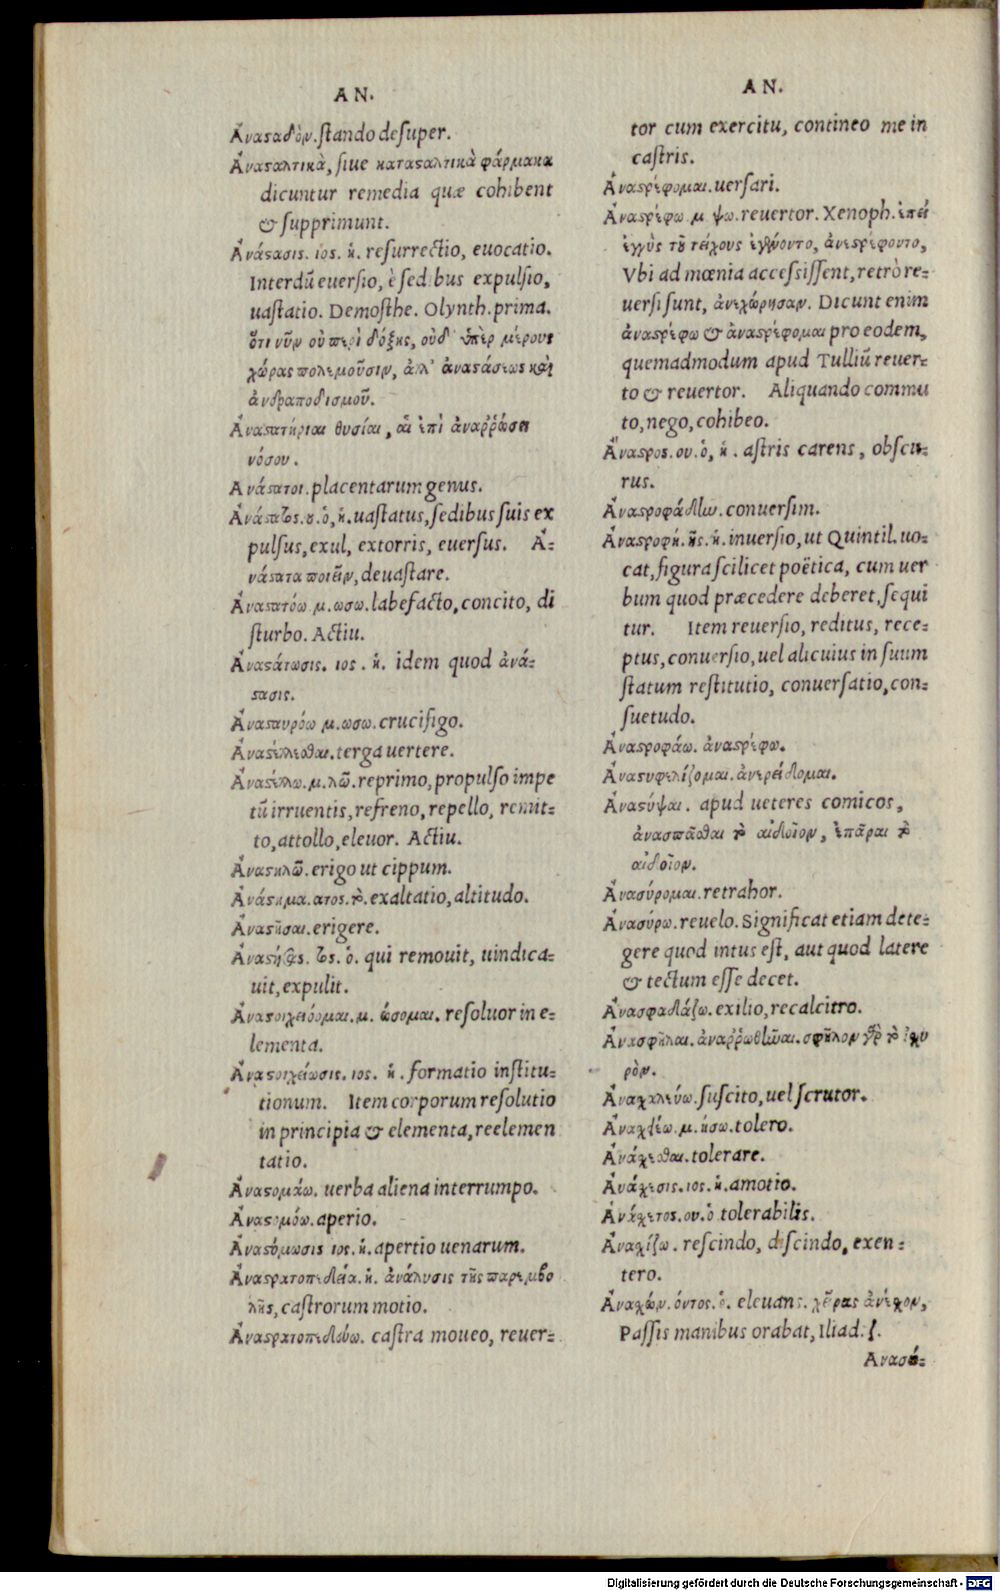 AN.
Ἀναϛαδὸν. ſtando deſuper.
Ἀναϛαλτικὰ, ſiue καταϛαλτικὰ φάρμακα
dicuntur remedia quæ cohibent
& ſupprimunt.
Ἀνάϛασις. ιος. ἡ. reſurrectio, euocatio.
Interdũ euerſio, è ſedibus expulſio,
uaſtatio. Demoſthe. Olynth. prima.
ὅτι νῦν οὐ περὶ δόξης, οὐδ' ὑπὲρ μέρους
χώρας πολεμοῦσιν, ἀλλ' ἀναϛάσεως καὶ
ἀνδραποδισμοῦ.
Ἀναϛατήριαι θυσίαι, αἱ ἐπὶ ἀναῤῥώσει
νόσου.
Ανάϛατοι. placentarum genus.
Ἀνάϛατος. ου. ὁ, ἡ. uaſtatus, ſedibus ſuis ex
pulſus, exul, extorris, euerſus. Ἀ-
νάϛατα ποιεῖν, deuaſtare.
Ἀναϛατόω μ. ωσω. labefacto, concito, di
ſturbo. Actiu.
Ἀναϛάτωσις. ιος. ἡ. idem quod ἀνά-
ϛασις.
Ἀναϛαυρόω μ. ωσω. crucifigo.
Ἀναϛέλλεσθαι. terga uertere.
Ἀναϛέλλω. μ. λῶ. reprimo, propulſo impe
tũ irruentis, refreno, repello, remit-
to, attollo, eleuor. Actiu.
Ἀναϛηλῶ. erigo ut cippum.
Ἀνάϛημα. ατος. τὸ. exaltatio, altitudo.
Ἀναϛῆσαι. erigere.
Ἀναϛήσας. τος. ὁ. qui remouit, uindica-
uit, expulit.
Ἀναϛοιχειόομαι. μ. ώσομαι. reſoluor in e-
lementa.
Ἀναϛοιχείωσις. ιος. ἡ. formatio inſtitu-
tionum. Item corporum reſolutio
in principia & elementa, reelemen
tatio.
Ἀναϛομάω. uerba aliena interrumpo.
Ἀναϛομόω. aperio.
Ἀναϛόμωσις ιος. ἡ. apertio uenarum.
Ἀναϛρατοπεδεία. ἡ. ἀνάλυσις τῆς παρεμβο
λῆς, caſtrorum motio.
Ἀναϛρατοπεδεύω. caſtra moueo, reuer-
AN.
tor cum exercitu, contineo me in
caſtris.
Ἀναϛρέφομαι. uerſari.
Ἀναϛρέφω μ ψω. reuertor. Xenoph. ἐπεὶ
ἐγγὺς τοῦ τείχους ἐγένοντο, ἀνεϛρέφοντο,
Vbi ad mœnia acceſsiſſent, retrò re-
uerſi ſunt, ἀνεχώρησαν. Dicunt enim
ἀναϛρέφω & ἀναϛρέφομαι pro eodem,
quemadmodum apud Tulliũ reuer-
to & reuertor. Aliquando commu
to, nego, cohibeo.
Ἄναϛρος. ου. ὁ, ἡ. aſtris carens, obſcu-
rus.
Ἀναϛροφάδην. conuerſim.
Ἀναϛροφὴ. ῆς. ἡ. inuerſio, ut Quintil. uo-
cat, figura ſcilicet poëtica, cum uer
bum quod præcedere deberet, ſequi
tur. Item reuerſio, reditus, rece-
ptus, conuerſio, uel alicuius in ſuum
ſtatum reſtitutio, conuerſatio, con-
ſuetudo.
Ἀναϛροφάω. ἀναϛρέφω.
Ἀναϛυφελίζομαι. ἀνερείδομαι.
Ἀναϛύψαι. apud ueteres comicos,
ἀνασπᾶσθαι τὸ αἰδοῖον, ἐπᾶραι τὸ
αἰδοῖον.
Ἀνασύρομαι. retrahor.
Ἀνασύρω. reuelo. Significat etiam dete-
gere quod intus eſt, aut quod latere
& tectum eſſe decet.
Ἀνασφαδάζω. exilio, recalcitro.
Ἀνασφῆλαι. ἀναῤῥωσθῆναι. σφῆλον γὰρ τὸ ἰσχυ
ρὸν.
Ἀνασχαλεύω. ſuſcito, uel ſcrutor.
Ἀνασχέω. μ. ήσω. tolero.
Ἀνάσχεσθαι. tolerare.
Ἀνάσχεσις. ιος. ἡ. amotio.
Ἀνάσχετος. ου. ὁ tolerabilis.
Ἀνασχίζω. reſcindo, diſcindo, exen-
tero.
Ἀνασχὼν. όντος. ὁ. eleuans. χεῖρας ἀνέσχον,
Paſsis manibus orabat, Iliad.
Ανασό-
Digitalisierung gefördert durch die Deutsche Forschungsgemeinschaft - DFG